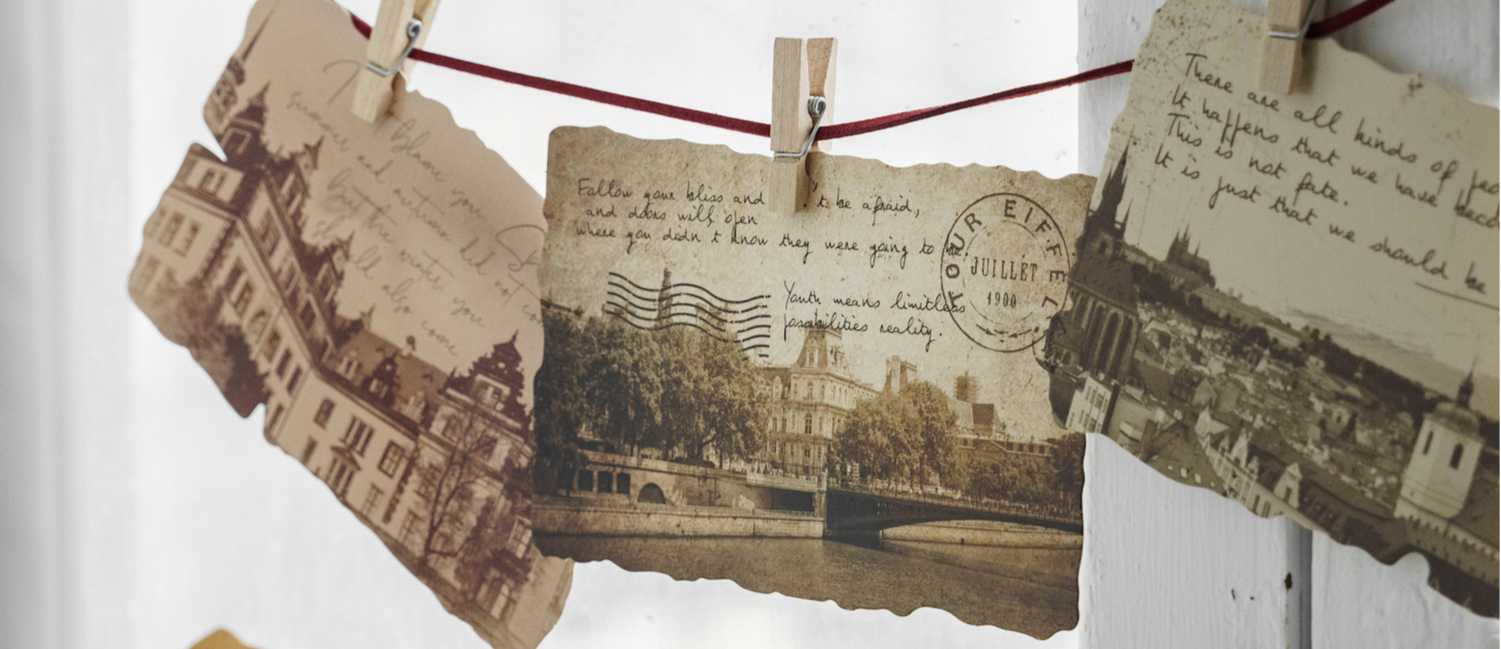 I blame you
summer and autumn did not co
but the winter you
all also come
Follow your bliss and 't be afraid,
and doors will open
where you didn t know they were going to be.
Youth means limitless
possibilities reality.
TOUR EIFFEL
JUILLET
1900
There are all kinds of peo
It happens that we have beco
This is not fate.
It is just that we should be